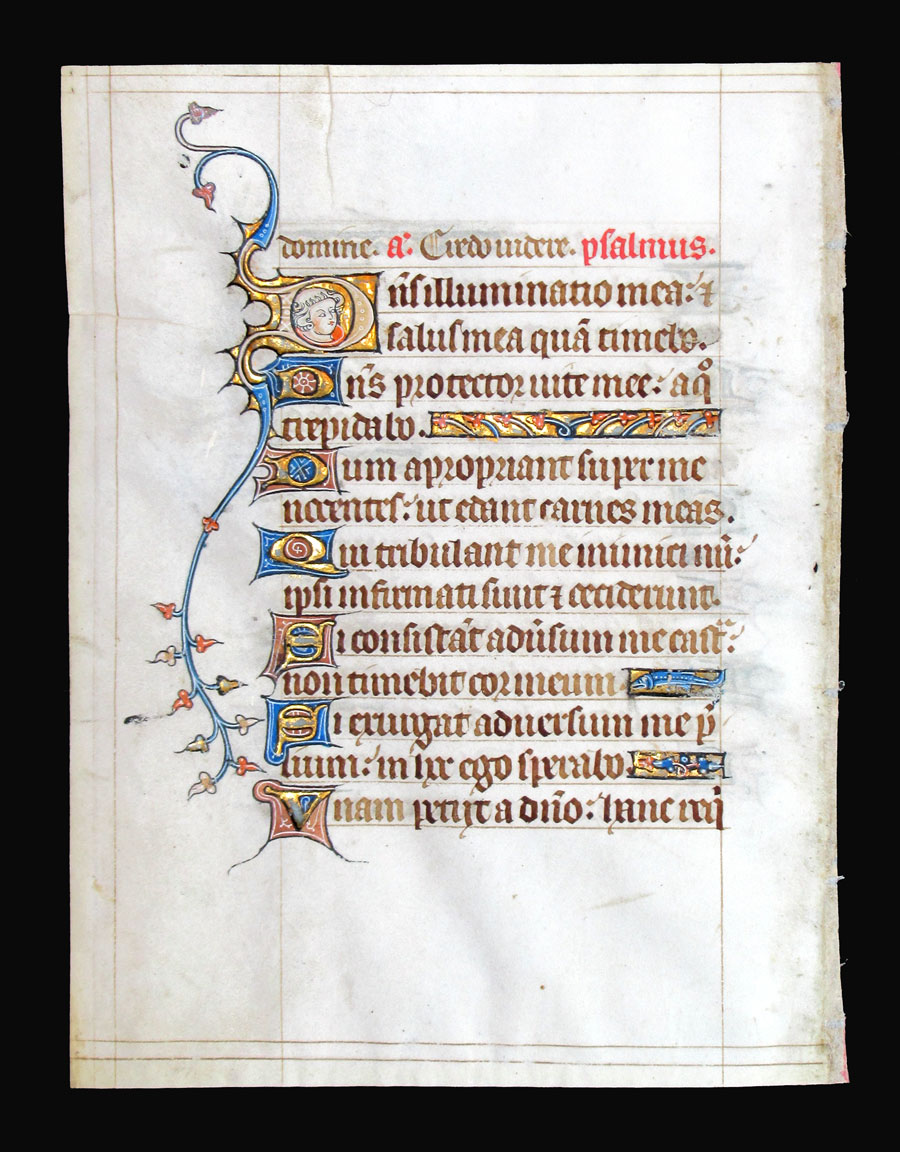 domine. a. Credo uidere. psalmus.
Dñs illuminatio mea: ⁊
salus mea quā timebo.
Dñs protector uite mee: a qͦ
trepidabo.
Dum apropriant super me
nocentes: ut edant carnes meas.
Qui tribulant me inimici mī:
ipsi infirmati sunt ⁊ ceciderunt.
Si consistāt aduͥsum me castͣ:
non timebit cor meum
Si exurgat aduersum me p̄
lium: in hoc ego sperabo.
Unam petiit a dño: hanc req̄